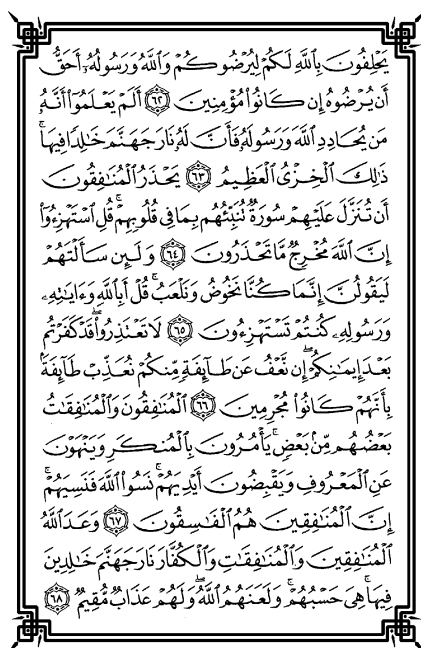 يَحۡلِفُونَ بِٱللَّهِ لَكُمۡ لِيُرۡضُوكُمۡ وَٱللَّهُ وَرَسُولُهُۥٓ أَحَقُّ
أَن يُرۡضُوهُ إِن كَانُواْ مُؤۡمِنِينَ ٦٢ أَلَمۡ يَعۡلَمُوٓاْ أَنَّهُۥ
مَن يُحَادِدِ ٱللَّهَ وَرَسُولَهُۥ فَأَنَّ لَهُۥ نَارَ جَهَنَّمَ خَٰلِدٗا فِيهَاۚ
ذَٰلِكَ ٱلۡخِزۡيُ ٱلۡعَظِيمُ ٦٣ يَحۡذَرُ ٱلۡمُنَٰفِقُونَ
أَن تُنَزَّلَ عَلَيۡهِمۡ سُورَةٞ تُنَبِّئُهُم بِمَا فِي قُلُوبِهِمۡۚ قُلِ ٱسۡتَهۡزِءُوٓاْ
إِنَّ ٱللَّهَ مُخۡرِجٞ مَّا تَحۡذَرُونَ ٦٤ وَلَئِن سَأَلۡتَهُمۡ
لَيَقُولُنَّ إِنَّمَا كُنَّا نَخُوضُ وَنَلۡعَبُۚ قُلۡ أَبِٱللَّهِ وَءَايَٰتِهِۦ
وَرَسُولِهِۦ كُنتُمۡ تَسۡتَهۡزِءُونَ ٦٥ لَا تَعۡتَذِرُواْ قَدۡ كَفَرۡتُم
بَعۡدَ إِيمَٰنِكُمۡۚ إِن نَّعۡفُ عَن طَآئِفَةٖ مِّنكُمۡ نُعَذِّبۡ طَآئِفَةَۢ
بِأَنَّهُمۡ كَانُواْ مُجۡرِمِينَ ٦٦ ٱلۡمُنَٰفِقُونَ وَٱلۡمُنَٰفِقَٰتُ
بَعۡضُهُم مِّنۢ بَعۡضٖۚ يَأۡمُرُونَ بِٱلۡمُنكَرِ وَيَنۡهَوۡنَ
عَنِ ٱلۡمَعۡرُوفِ وَيَقۡبِضُونَ أَيۡدِيَهُمۡۚ نَسُواْ ٱللَّهَ فَنَسِيَهُمۡۚ
إِنَّ ٱلۡمُنَٰفِقِينَ هُمُ ٱلۡفَٰسِقُونَ ٦٧ وَعَدَ ٱللَّهُ
ٱلۡمُنَٰفِقِينَ وَٱلۡمُنَٰفِقَٰتِ وَٱلۡكُفَّارَ نَارَ جَهَنَّمَ خَٰلِدِينَ
فِيهَاۚ هِيَ حَسۡبُهُمۡۚ وَلَعَنَهُمُ ٱللَّهُۖ وَلَهُمۡ عَذَابٞ مُّقِيمٞ ٦٨